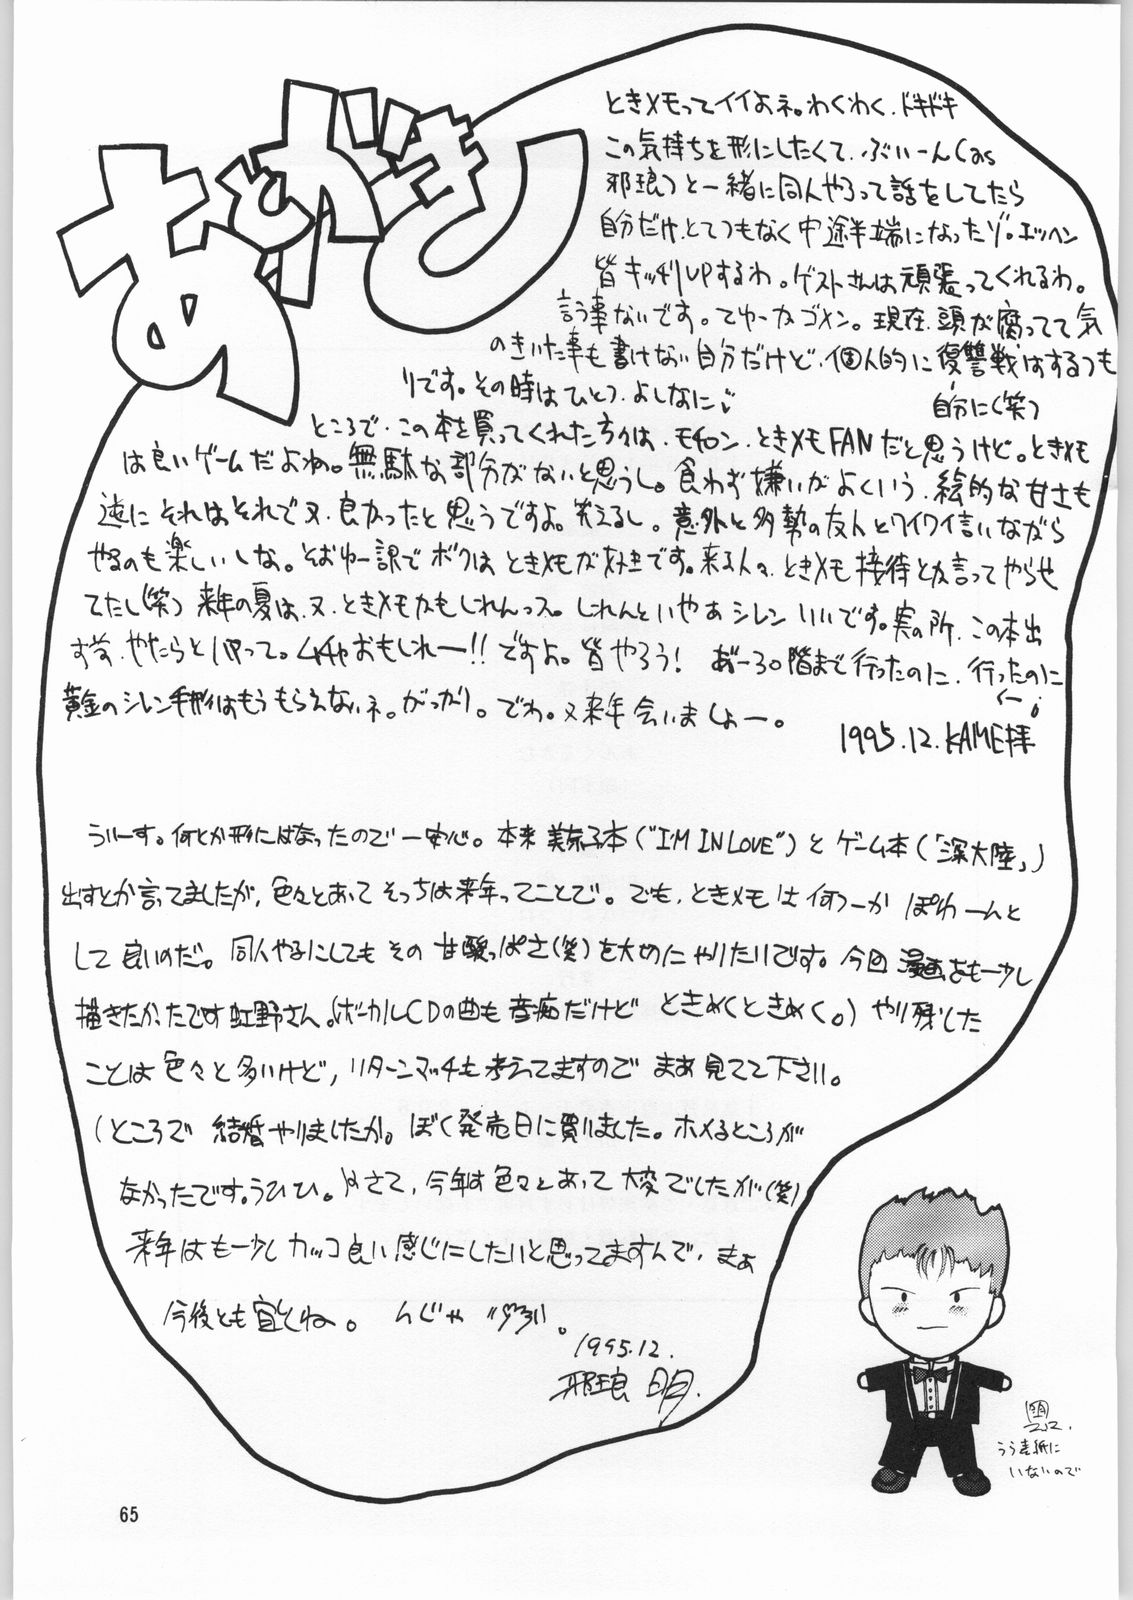 あとがき
ときメモってイイよネ。わくわく、ドキドキ
この気持ちを形にしたくて、ぶいーん(as
邪琅)と一緒に同人やろって話をしてたら
自分だけ、とてつもなく中途半端になったゾ。エッヘン
皆キッチリUPするわ。ゲストさんは頑張ってくれるわ。
言う事ないです。てゆーかゴメン。現在、頭が腐ってて気
のきいた事も書けない自分だけど、個人的に復讐戦はするつも
自分に(笑)
りです。その時はひとつ、よしなに
ところで、この本を買ってくれた方々は、モチロン、ときメモFANだと思うけど。ときメモ
は良いゲームだよね。無駄な部分がないと思うし。食わず嫌いがよくいう、絵的な甘さも
逆にそれはそれで又、良かったと思うですよ。笑えるし。意外と多勢の友人とワイワイ言いながら
やるのも楽しいしな。そおゆー訳でボクはときメモが好きです。来る人々、ときメモ接待とか言ってやらせ
てたし(笑) 来年の夏は、又、ときメモかもしれんっス。しれんといやあシレンいいです。実の所、この本出
ず前、やたらとハマって。ムチャおもしれー!!ですよ。皆やろう! あーろ0階まで行ったのに、行ったのに
黄金のシレン手形はもうもらえないネ。がっかり。でわ。又来年会いましょー。
1995.12.KAME拝
ういーす。何とか形にはなったので一安心。本来 美奈子本("I'M IN LOVE")とゲーム本(「深大陸」)
出すとか言ってましたが、色々とあってそっちは来年ってことで。でも、ときメモは何つーか ぽわーんと
して良いのだ。同人やるにしてもその甘酸っぱさ(笑)を大めにやりたいです。今回漫画をもー少し
描きたかったです虹野さん。(ボーカルCDの曲も音痴だけど ときめくときめく。) やり残した
ことは色々と多いけど、リターンマッチも考えてますので まあ見てて下さい。
(ところで 結婚やりましたか。ぼく発売日に買いました。ホメるところが
なかったです。うひひ。) さて、今年は色々とあって大変でしたが(笑)
来年はもー少しカッコ良い感じにしたいと思ってますんで、まあ
今後とも宜しくね。 んじゃ
1995.12.
邪琅 明.
うら表紙に
いないので
65